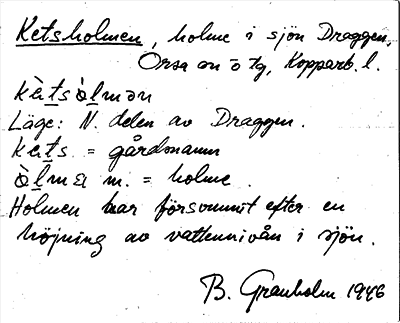 Ketsholmen, holme i sjön Draggen,
Orsa sn o tg, Kopparb. l.
kètsòlmən
Läge: N. delen av Draggen.
kets = gårdsnamn
òlm m. = holme.
Holmen har försvunnit efter en
höjning av vattennivån i sjön.
B. Granholm 1946